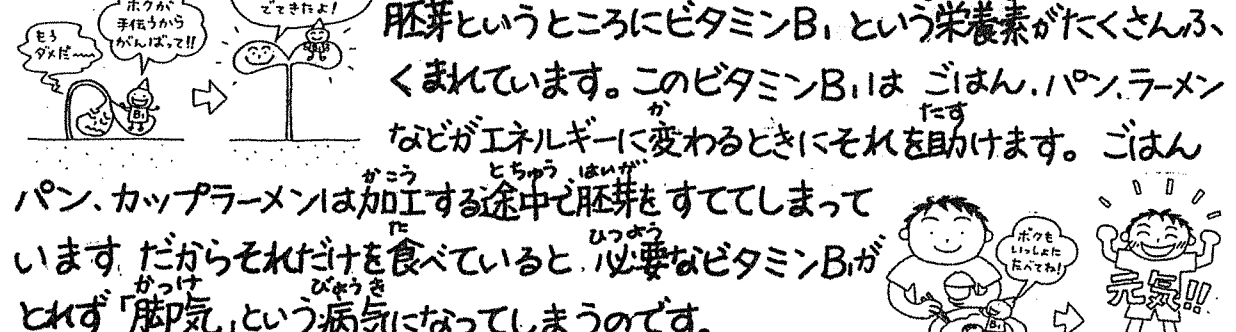 ボクが
手伝うから
がんばって!!
もう
ダメだ〜
でてきたよ!
胚芽というところにビタミンB₁という栄養素がたくさんふ、
くまれています。このビタミンB₁は ごはん、パン、ラーメン
などがエネルギーに変わるときにそれを助けます。ごはん
か
たす
パン、カップラーメンは加工する途中で胚芽をすててしまって
かこう とちゅう はいが
います だからそれだけを食べていると、必要なビタミンB₁が
た ひつよう
とれず「脚気」という病気になってしまうのです。
かっけ びょうき
B1
ボクも
いっしょに
たべてね!
元気!!